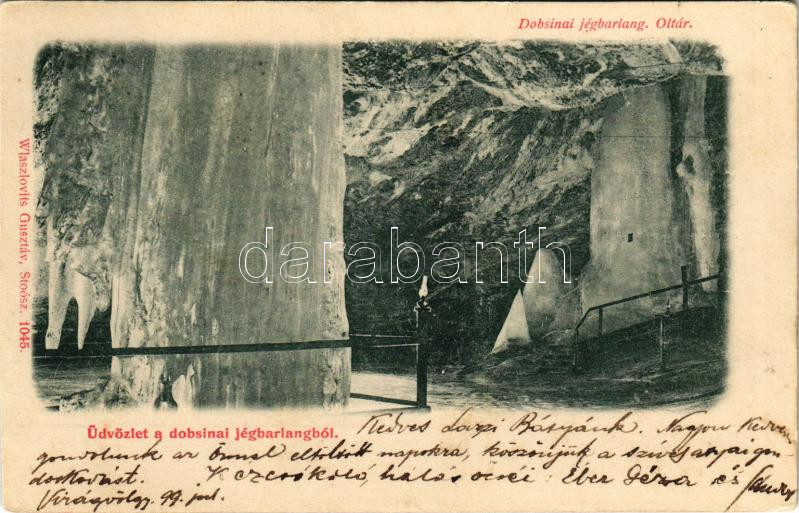 Dobsinai jégbarlang. Oltár.
Wlaszlovits Gusztáv, Stoósz, 1045.
darabanth
Üdvözlet a dobsinai jégbarlangból.
Kedves Laczi Bátyánk. Nagyon kedvesen
gondolunk az Önnel eltöltött napokra, köszönjük a szíves atyai gon-
doskodást. Kezcsókoló, hálás öcséi: Éber Géza és Sándor
Virágvölgy. 99. jul.